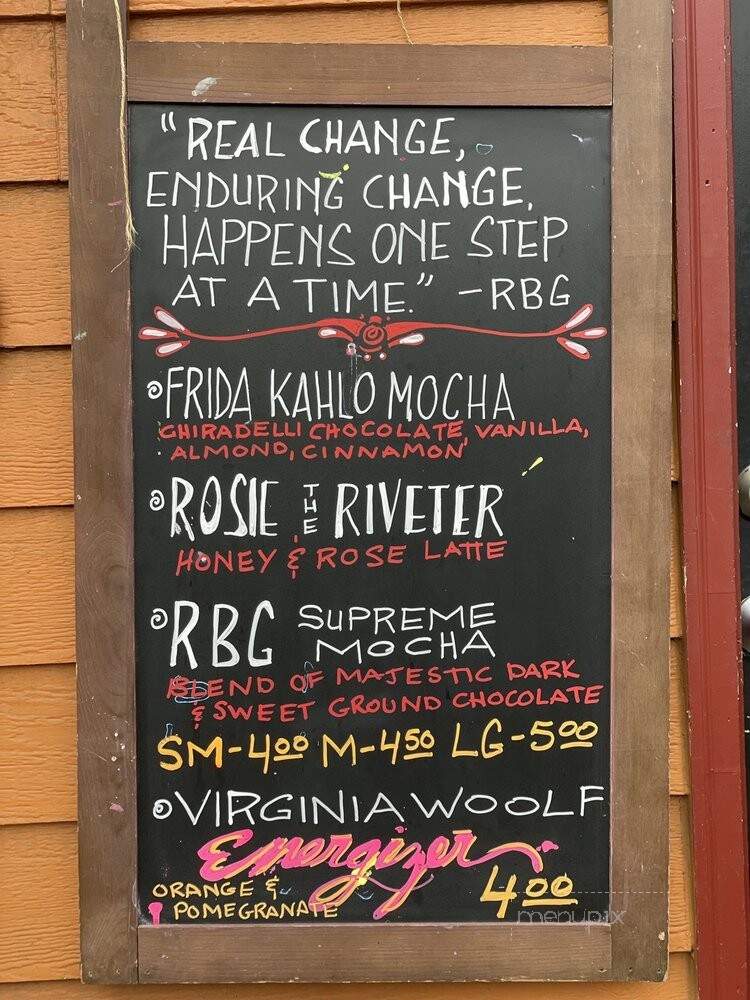 "REAL CHANGE,
ENDURING CHANGE,
HAPPENS ONE STEP
AT A TIME." -RBG
FRIDA KAHLO MOCHA
GHIRADELLI CHOCOLATE, VANILLA,
ALMOND, CINNAMON
ROSIE THE RIVETER
HONEY & ROSE LATTE
RBG SUPREME
MOCHA
BLEND OF MAJESTIC DARK
& SWEET GROUND CHOCOLATE
SM-4.00 M-4.50 LG-5.00
VIRGINIA WOOLF
Energizer
ORANGE &
POMEGRANATE
4.00
menupix